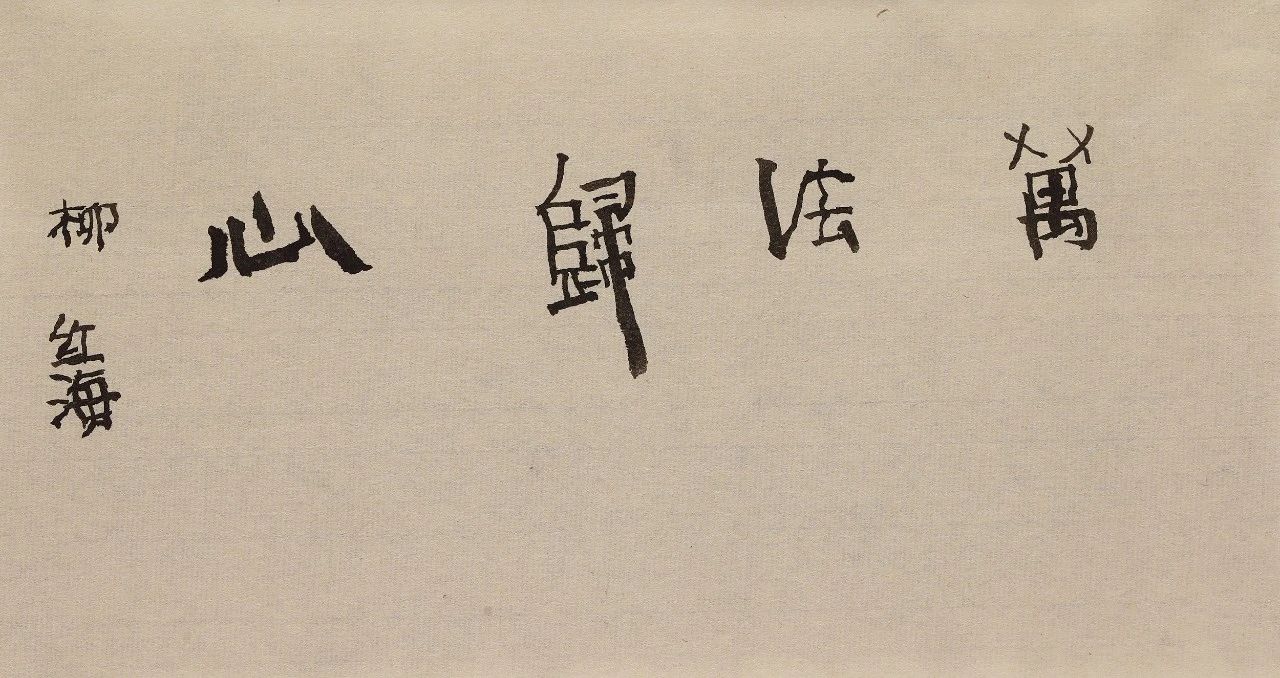 萬法歸心
柳红海